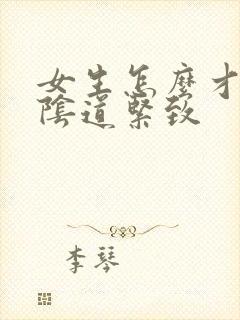 女生怎麼才
陰道緊致
李琴